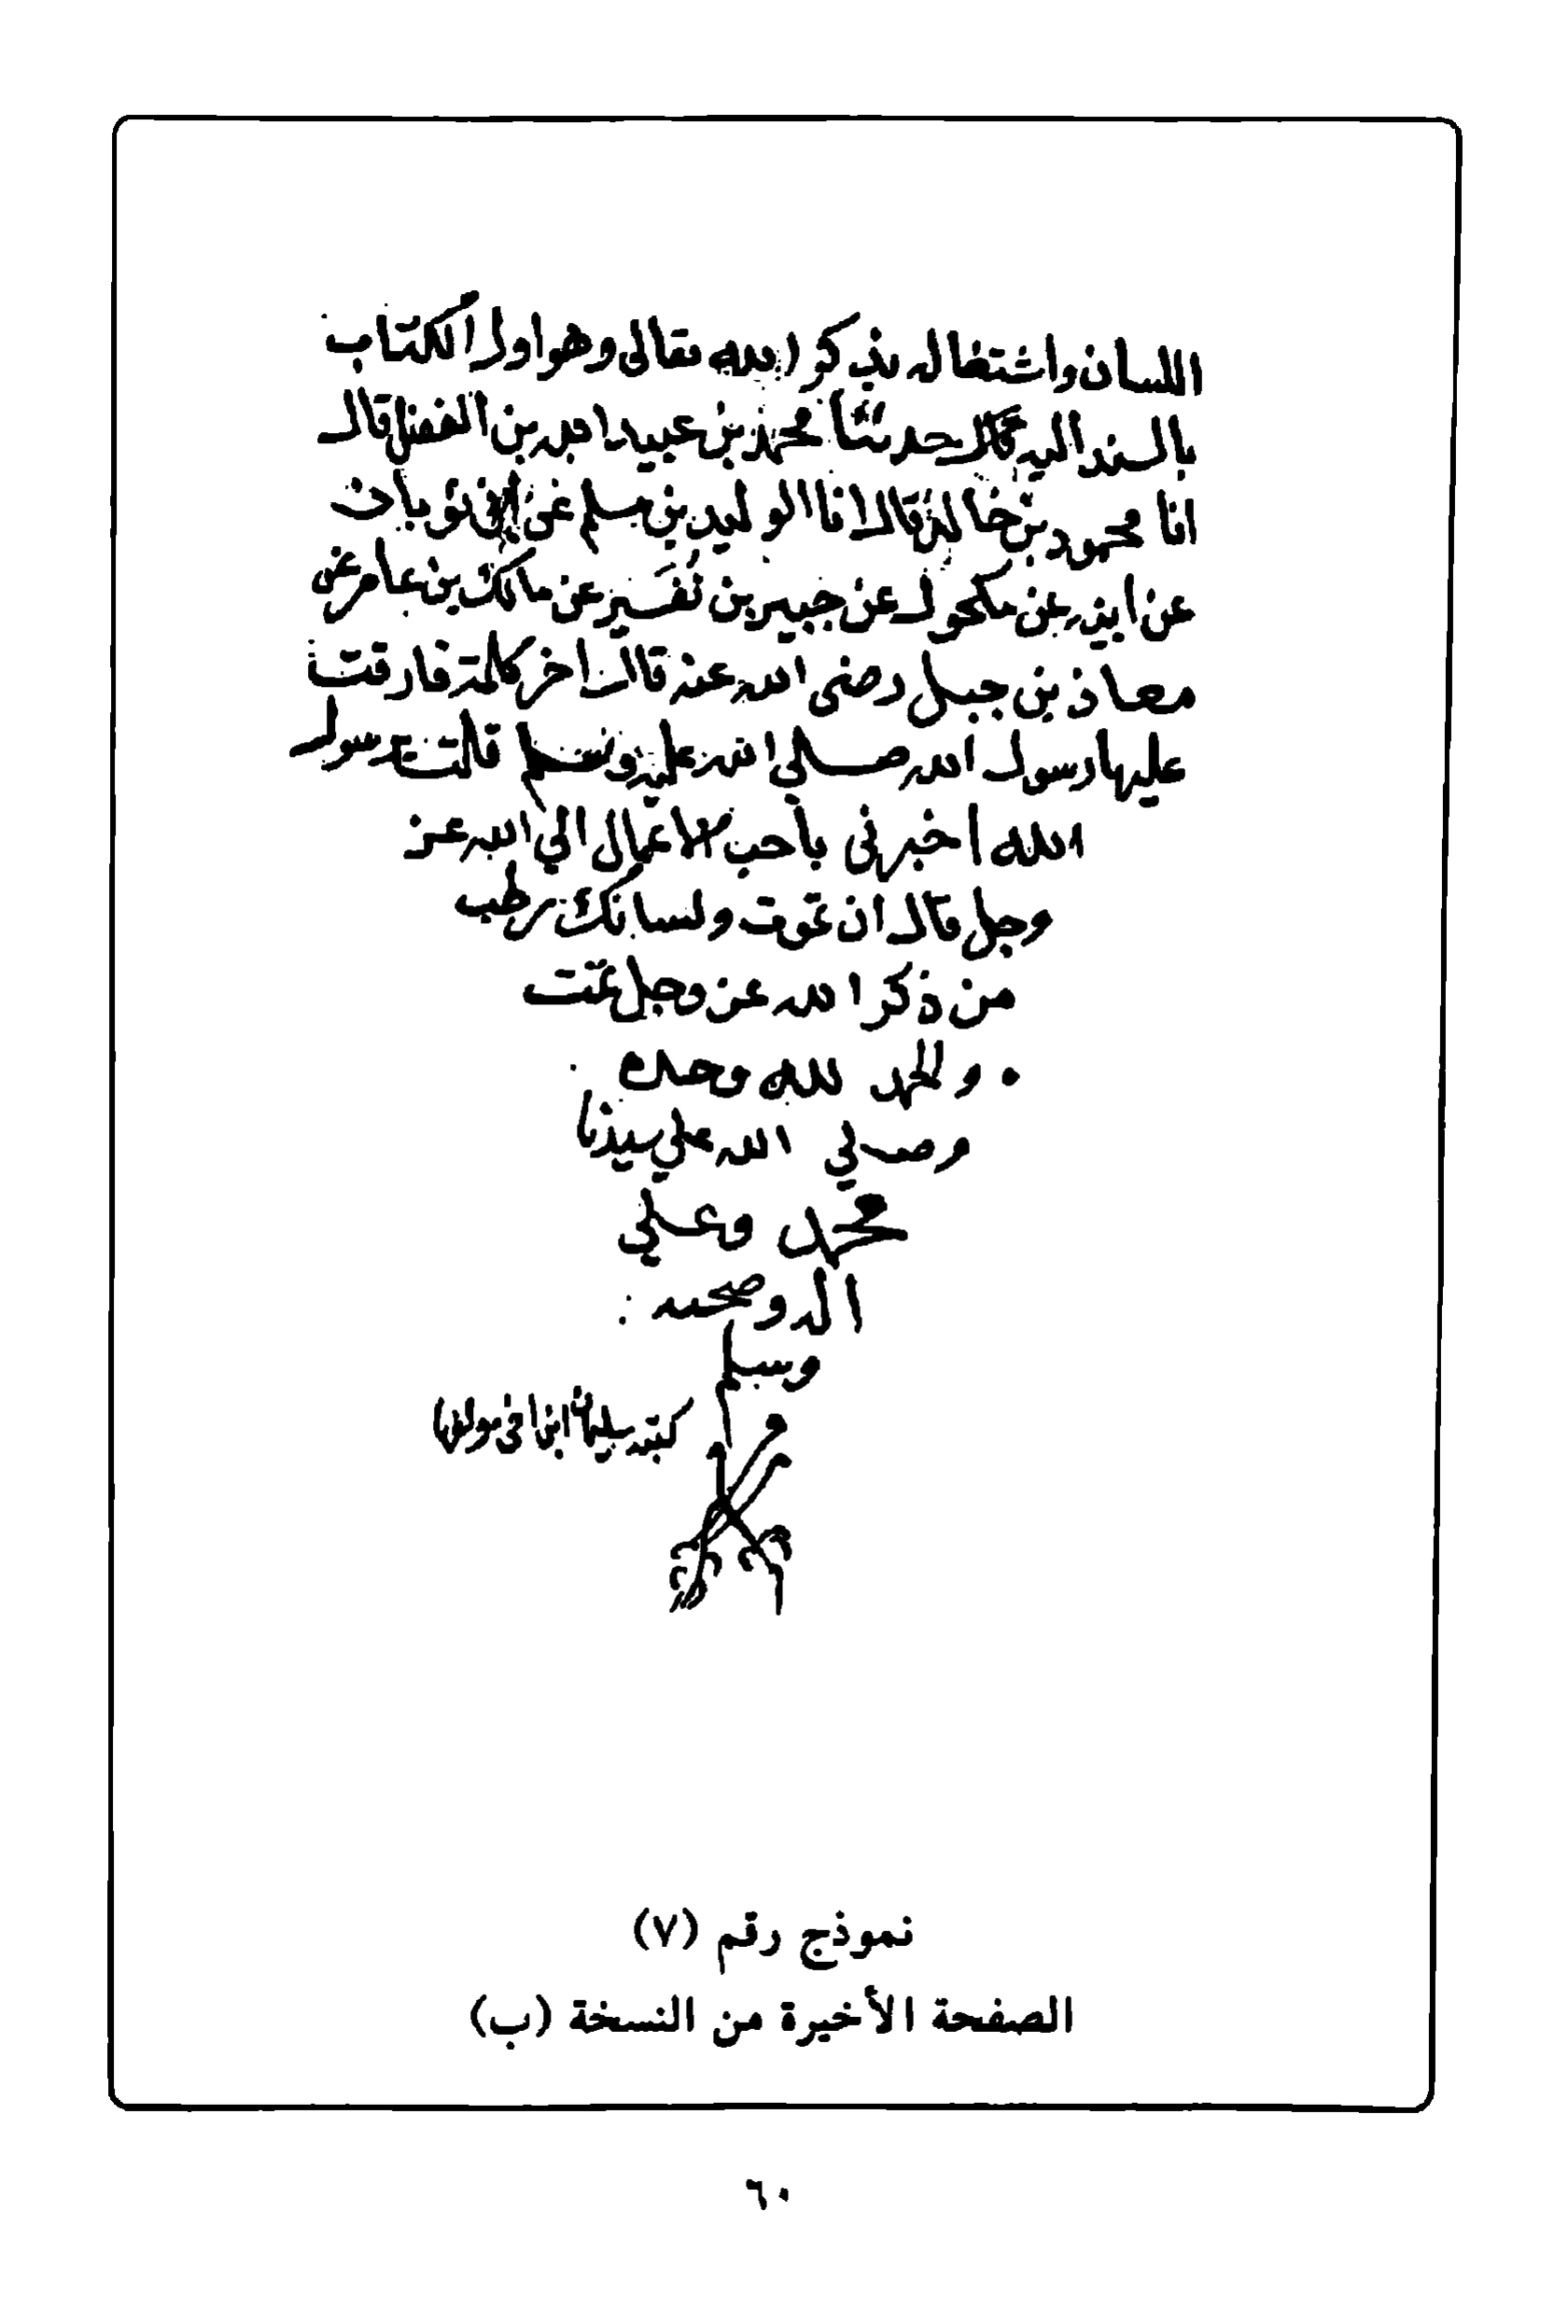 اللسان واشتغاله بذكر الله تعالى وهو اول الكتاب
بالسند اليه قال حدثنا محمد بن عبيد الله بن الفضل قال
انا محمود بن خالد قال انا الوليد بن مسلم عن ثوبان
عن ابيه عن مكحول عن جبير بن نفير عن مالك بن عامر عن
معاذ بن جبل رضى الله عنه قال اخر كلمة فارقت
عليها رسول الله صلى الله عليه وسلم قلت يرسول
الله أخبرنى بأحب الاعمال الي الله عز
وجل قال ان تموت ولسانك رطب
من ذكر الله عز وجل تمت
. والحمد لله وحده
وصلي الله علي سيدنا
محمد وعلي
اله وصحبه :
وسلم
كتبه سليمان
نموذج رقم (٧)
الصفحة الأخيرة من النسخة (ب)
٦٠